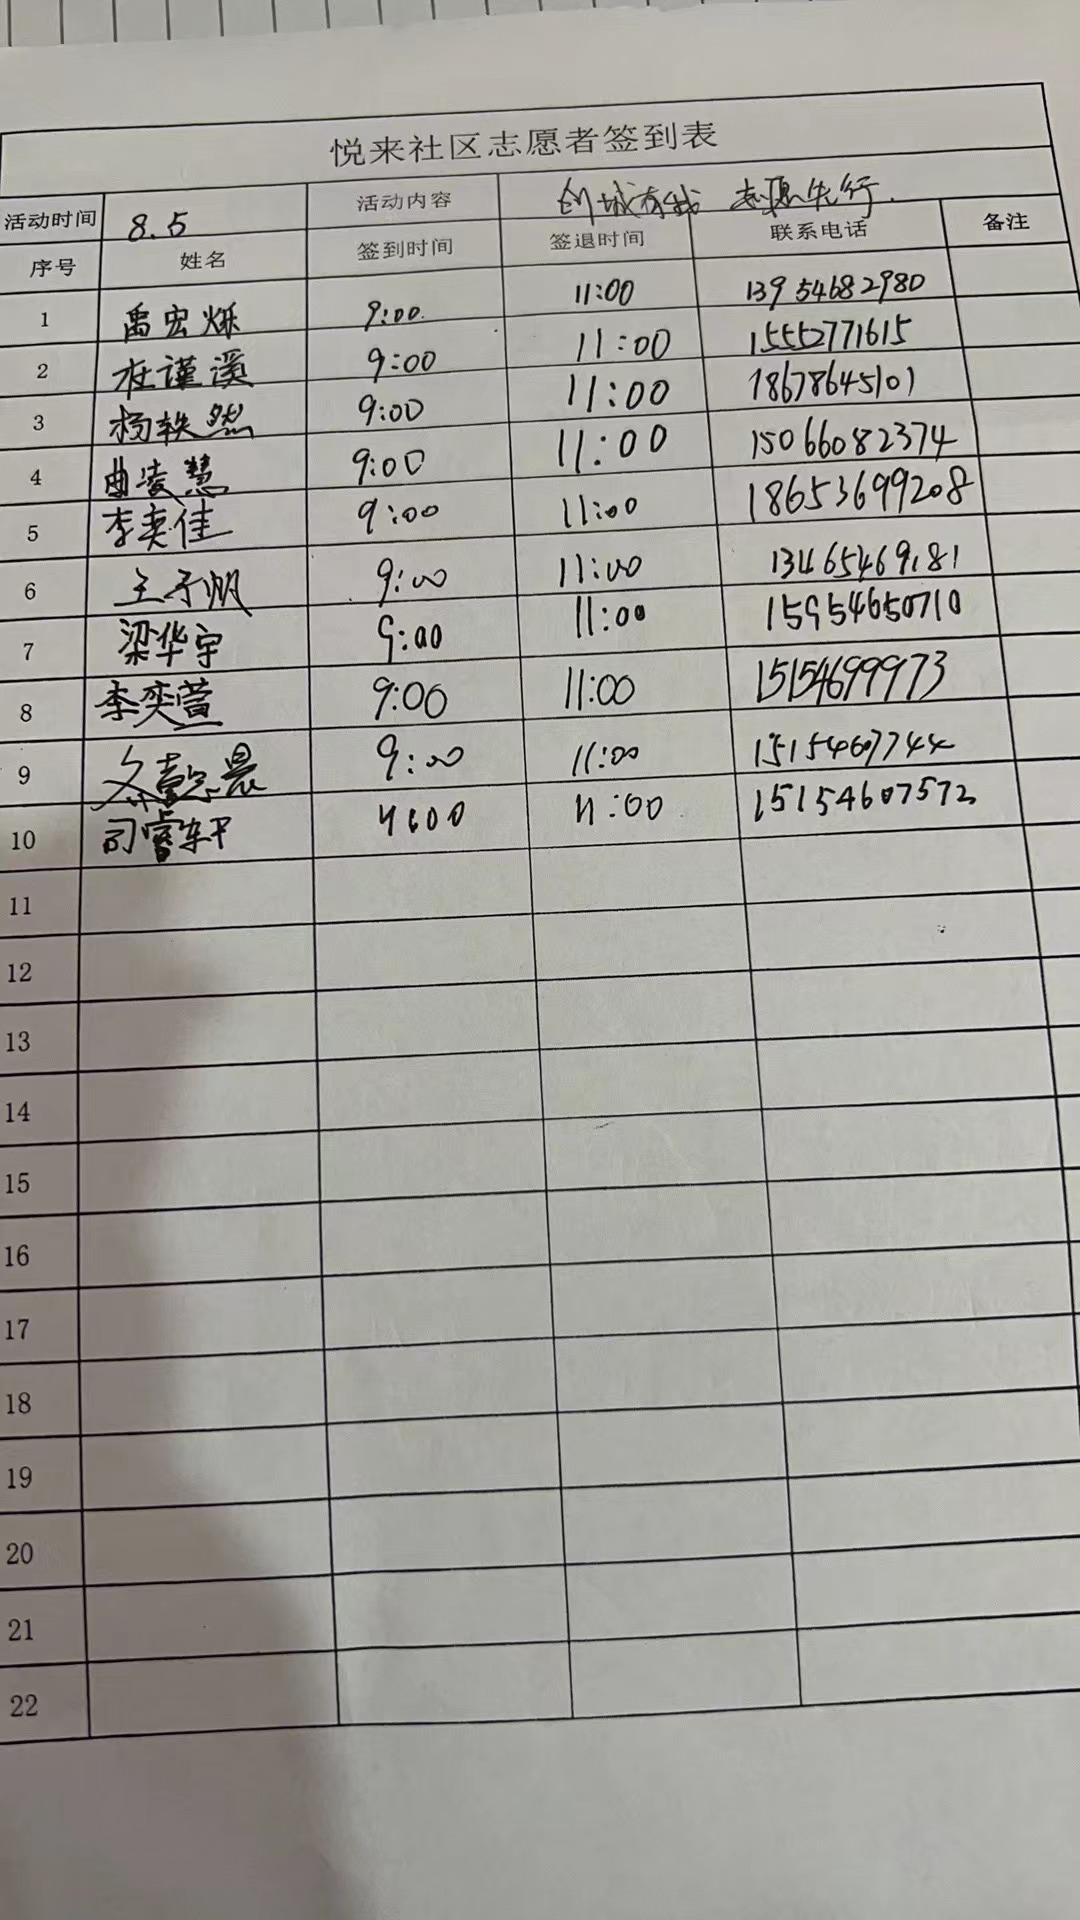 悦来社区志愿者签到表
活动时间 8.5 活动内容 创城有我 志愿先行.
序号 姓名 签到时间 签退时间 联系电话 备注
1 禹宏烁 9:00. 11:00 13954682980
2 杜谨溪 9:00 11:00 15552771615
3 杨轶然 9:00 11:00 18678645101
4 曲凌慧 9:00 11:00 15066082374
5 李奕佳 9:00 11:00 18653699208
6 王子帆 9:00 11:00 13465469181
7 梁华宇 9:00 11:00 15954650710
8 李奕萱 9:00 11:00 15154699973
9 9:00 11:00 15154607744
10 司睿轩 11:00 15154607572
11
12
13
14
15
16
17
18
19
20
21
22